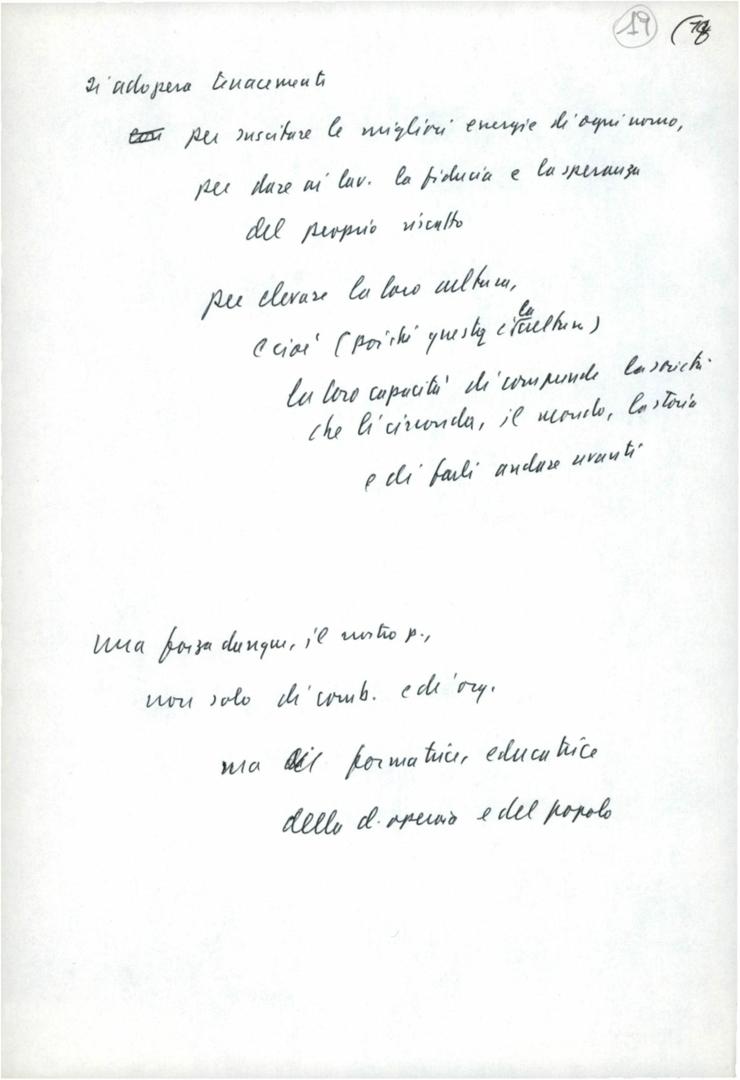 19 (18
si adopera tenacemente
per suscitare le migliori energie di ogni uomo,
per dare ai lav. la fiducia e la speranza
del proprio riscatto
per elevare la loro cultura,
e cioè (poiché questa è la cultura)
la loro capacità di comprende la società
che li circonda, il mondo, la storia
e di farli andare avanti
una forza dunque, il nostro p.,
non solo di comb. e di org.
ma formatrice, educatrice
della cl. operaia e del popolo